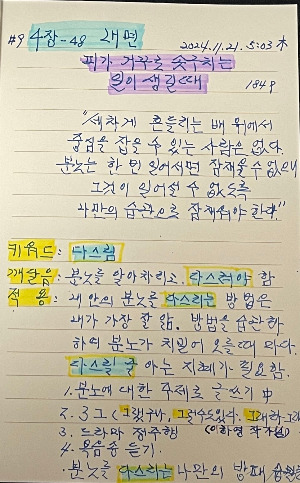 #9 4장-48 내면
2024.11.21. 5:03 木
피가 거꾸로 솟구치는
일이 생길 때
184p
"세차게 흔들리는 배 위에서
중심을 잡을 수 있는 사람은 없다.
분노는 한 번 일어서면 잠재울 수 없으니
그것이 일어설 수 없도록
나만의 습관으로 잠재워야 한다."
키워드: 다스림
깨달음: 분노를 알아차리고, 다스려야 함
적용: 내 안의 분노를 다스리는 방법은
내가 가장 잘 앎. 방법을 습관화
하여 분노가 치밀어 오를 때마다.
다스릴 줄 아는 지혜가 필요함.
1. 분노에 대한 주제로 글쓰기 中
2. 3그 (그랬구나, 그럴수도있다, 그래라그래
3. 드라마 정주행 (이하영 작가님)
4. 복음송 듣기.
·분노를 다스리는 나만의 방패